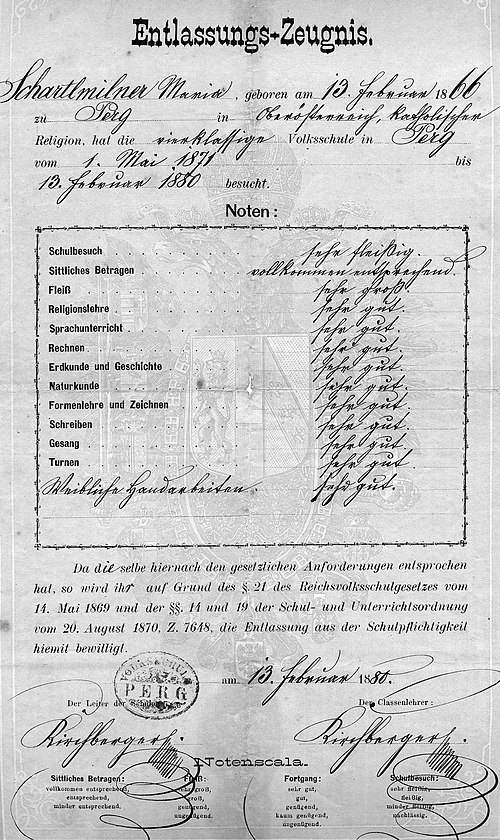 Entlassungs-Zeugnis.
Schartlmilner Maria, geboren am 13. Februar 1866
zu Perg in Oberösterreich, katholischer
Religion, hat die vierklassige Volksschule in Perg
vom 1. Mai 1871 bis
13. Februar 1880 besucht.
Noten:
Schulbesuch sehr fleißig
Sittliches Betragen vollkommen entsprechend.
Fleiß sehr groß.
Religionslehre sehr gut.
Sprachunterricht sehr gut.
Rechnen sehr gut.
Erdkunde und Geschichte sehr gut.
Naturkunde sehr gut.
Formenlehre und Zeichnen sehr gut.
Schreiben sehr gut.
Gesang sehr gut.
Turnen sehr gut.
Weibliche Handarbeiten. sehr gut.
Da dieselbe hiernach den gesetzlichen Anforderungen entsprochen
hat, so wird ihr auf Grund des § 21 des Reichsvolksschulgesetzes vom
14. Mai 1869 und der §§. 14 und 19 der Schul- und Unterrichtsordnung
vom 20. August 1870, Z. 7648, die Entlassung aus der Schulpflichtigkeit
hiemit bewilligt.
VOLKSSCHULE
PERG
am 13. Februar 1880.
Der Leiter der Der Classenlehrer:
Kirchberger Kirchberger
Notenscala.
Sittliches Betragen: Fleiß: Fortgang: Schulbesuch:
vollkommen entsprechend, sehr groß, sehr gut, sehr fleißig,
entsprechend, groß, gut, fleißig,
minder entsprechend. genügend, genügend, minder fleißig,
ungenügend. kaum genügend, nachlässig.
ungenügend.